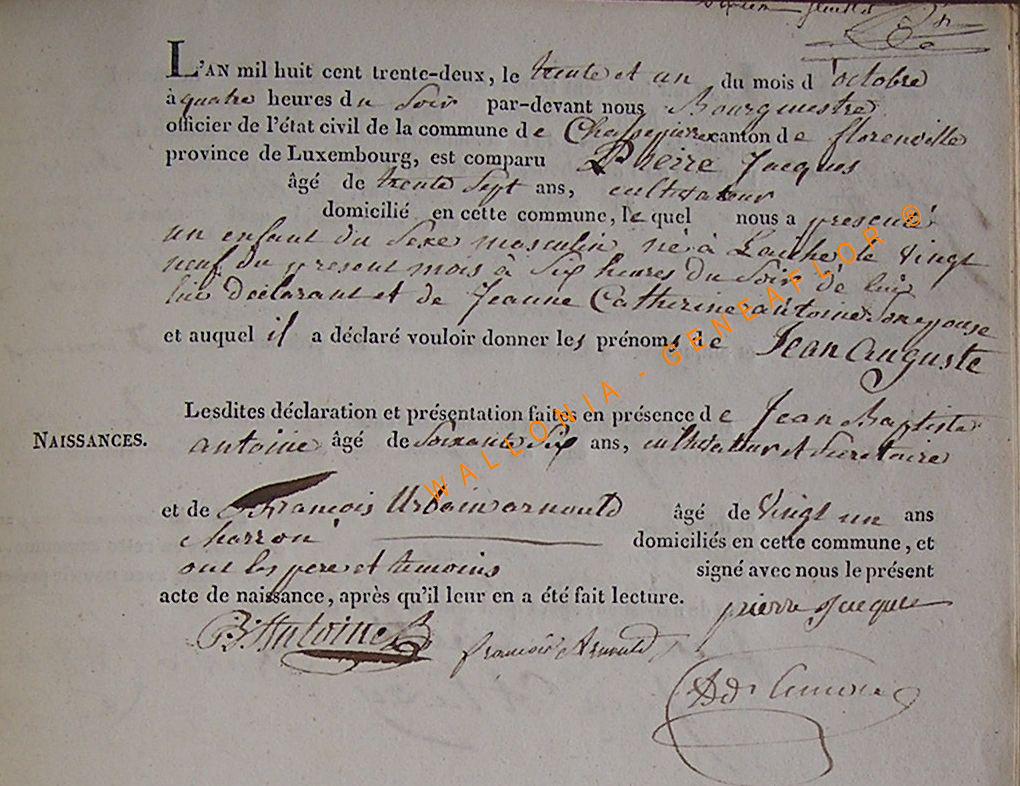 L'AN mil huit cent trente-deux, le trente et un du mois d'octobre
à quatre heures du Soir par-devant nous Bourgmestre
officier de l'état civil de la commune de Chassepierre canton de florenville
province de Luxembourg, est comparu Pierre Jacques
âgé de trente Sept ans, cultivateur
domicilié en cette commune, le quel nous a presenté
un enfant du Sexe masculin né à Laiche le vingt
neuf du present mois à Six heures du Soir de lui
lui declarant et de Jeanne Catherine antoine Son epouse
et auquel il a déclaré vouloir donner les prénoms de Jean Auguste
Lesdites déclaration et présentation faites en présence de Jean Baptiste
NAISSANCES.
antoine âgé de Soixante Six ans, cultivateur et Secretaire
et de François Urbain arnould âgé de vingt un ans
charron domiciliés en cette commune, et
ont les pere et temoins signé avec nous le présent
acte de naissance, après qu'il leur en a été fait lecture.
pierre Jacques
B Antoine
francois Arnould
WALLONIA - GENEAFLOR ®